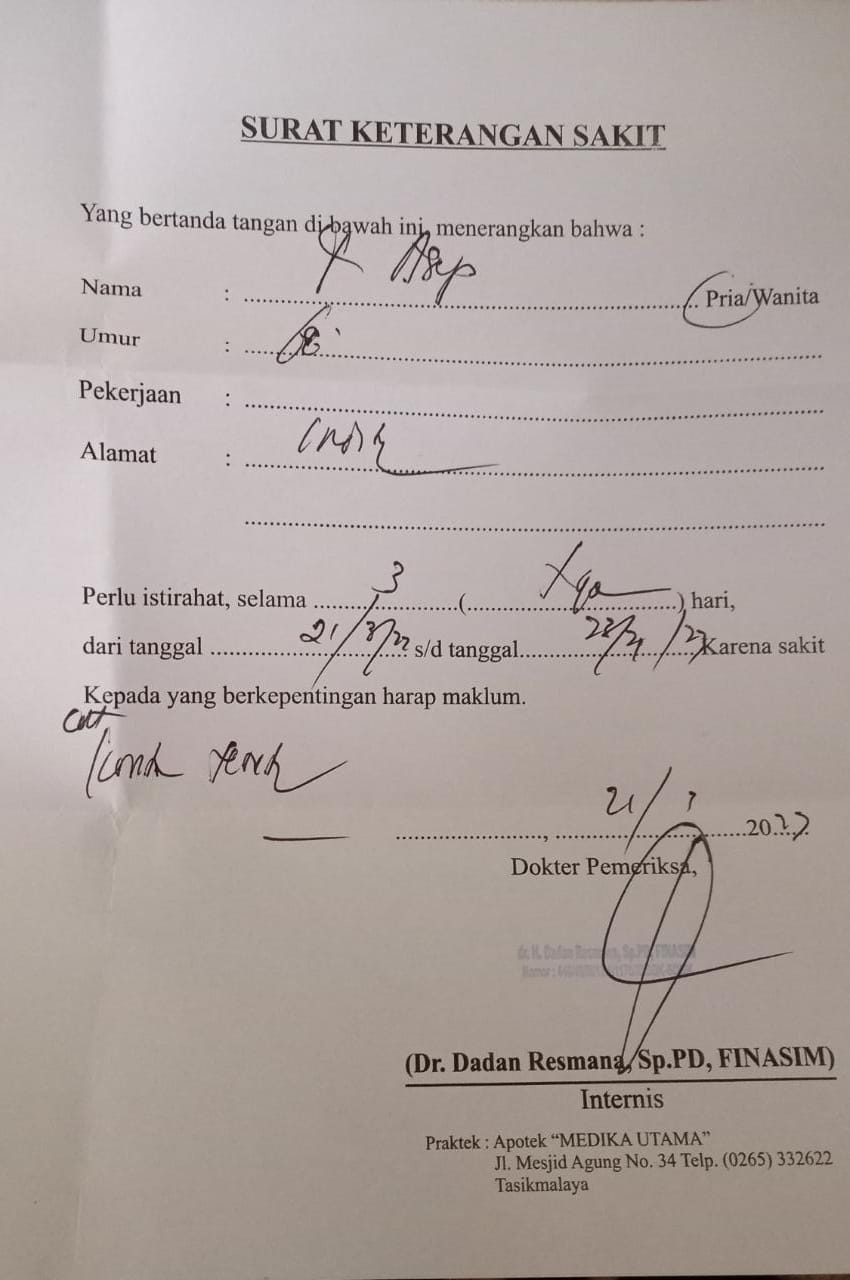 SURAT KETERANGAN SAKIT
Yang bertanda tangan di bawah ini, menerangkan bahwa :
Nama : Asep Pria/Wanita
Umur :
Pekerjaan :
Alamat :
Perlu istirahat, selama 3 (tiga) hari,
dari tanggal 21/3/22 s/d tanggal Karena sakit
Kepada yang berkepentingan harap maklum.
21/3 2022
Dokter Pemeriksa,
(Dr. Dadan Resmana, Sp.PD, FINASIM)
Internis
Praktek : Apotek “MEDIKA UTAMA”
Jl. Mesjid Agung No. 34 Telp. (0265) 332622
Tasikmalaya